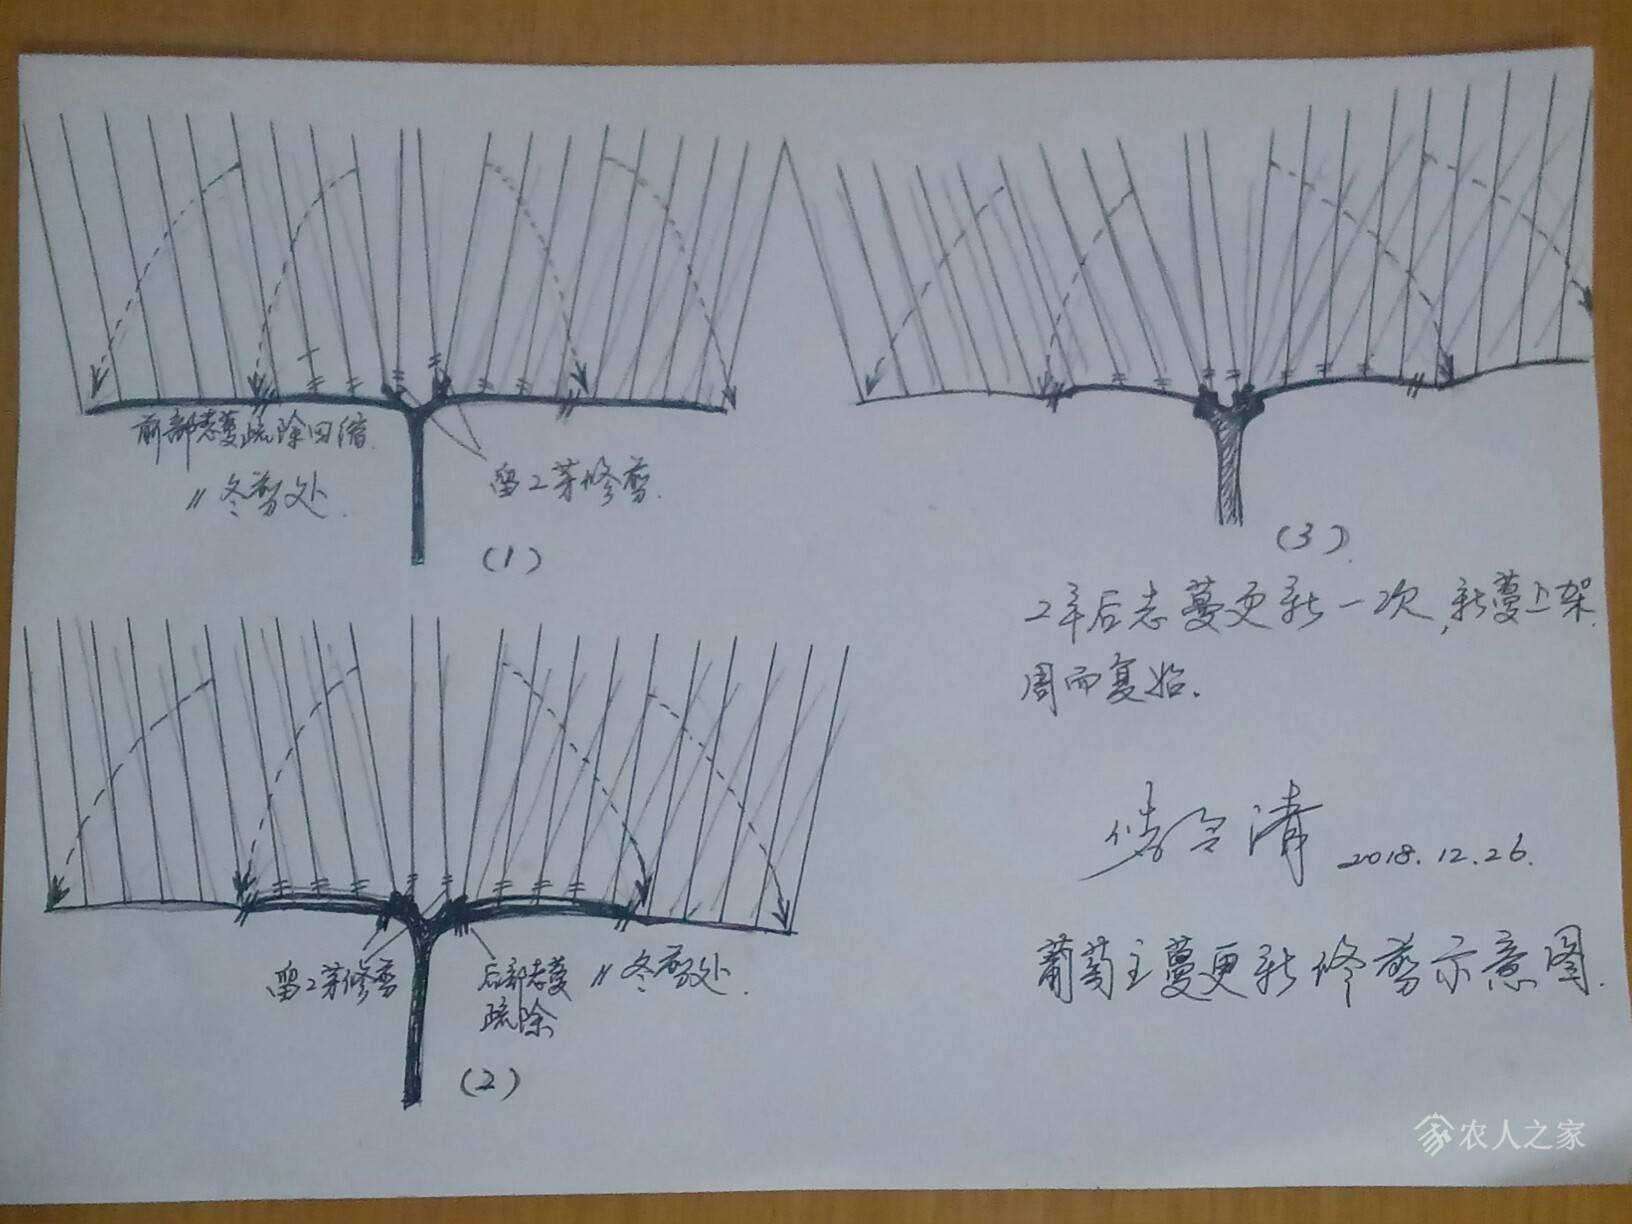 前部老蔓疏除回缩.
〃冬剪处.
留2芽修剪.
(1)
留2芽修剪
后部老蔓
疏除
〃冬剪处.
(2)
(3)
2年后老蔓更新一次,新蔓上架.
周而复始.
2018.12.26.
葡萄主蔓更新修剪示意图.
农人之家